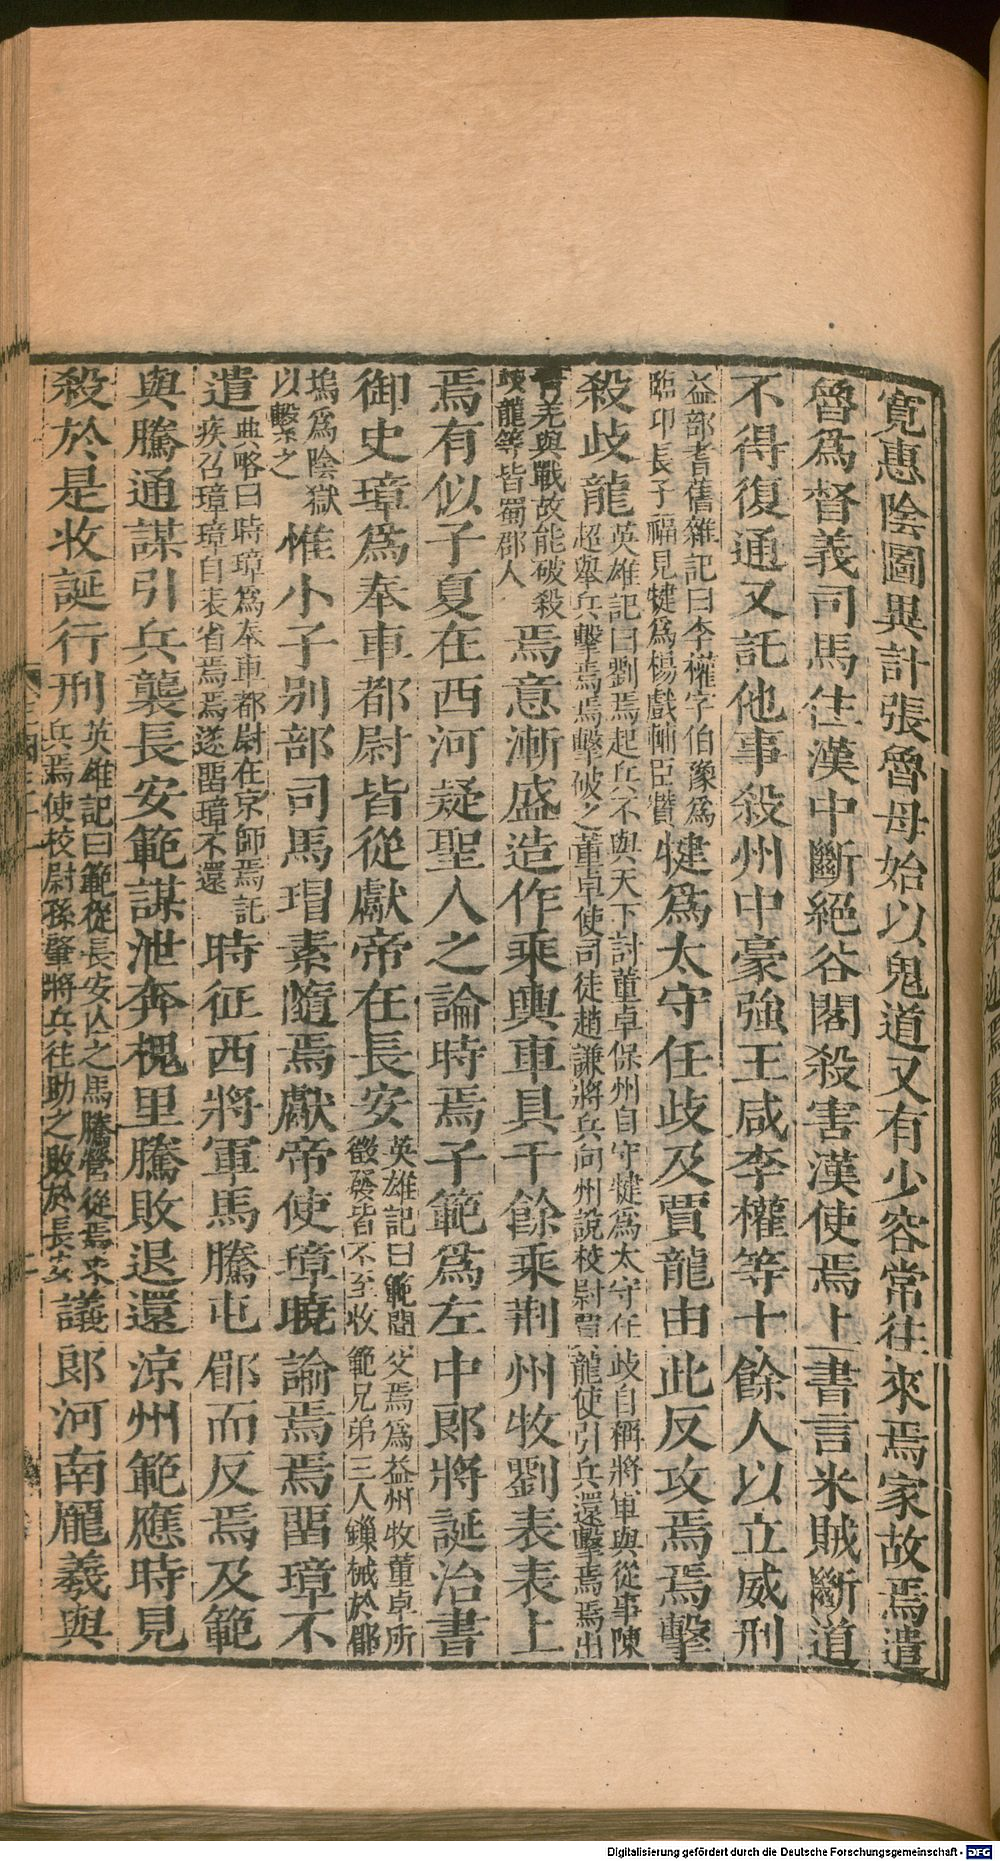 寛惠陰圖異計張魯母始以鬼道又有少容常往來焉家故焉遣
魯爲督義司馬往漢中斷絕谷閣殺害漢使焉上書言米賊斷道
不得復通又託他事殺州中豪強王咸李權等十餘人以立威刑
益部耆舊雜記曰李權字伯豫爲
臨卭長子福見犍爲楊戲輔臣贊
犍爲太守任歧及賈龍由此反攻焉焉擊
殺歧龍
英雄記曰劉焉起兵不與天下討董卓保州自守犍爲太守任歧自稱將軍與從事陳
超舉兵擊焉焉擊破之董卓使司徒趙謙將兵向州說校尉賈龍使引兵還擊焉焉出
青羌與戰故能破殺
歧龍等皆蜀郡人
焉意漸盛造作乘輿車具千餘乘荆州牧劉表表上
焉有似子夏在西河疑聖人之論時焉子範爲左中郎將誕治書
御史璋爲奉車都尉皆從獻帝在長安
英雄記曰範聞父焉爲益州牧董卓所
徵發皆不至收範兄弟三人鏁械於郿
塢爲陰獄
以繫之
惟小子别部司馬瑁素隨焉獻帝使璋曉諭焉焉畱璋不
遣
典略曰時璋爲奉車都尉在京師焉託
疾召璋璋自表省焉焉遂畱璋不還
時征西將軍馬騰屯郿而反焉及範
與騰通謀引兵襲長安範謀泄奔槐里騰敗退還涼州範應時見
殺於是收誕行刑
英雄記曰範從長安亡之馬騰營從焉求
兵焉使校尉孫肇將兵往助之敗於長安
議郎河南龐羲與
Digitalisierung gefördert durch die Deutsche Forschungsgemeinschaft - DFG